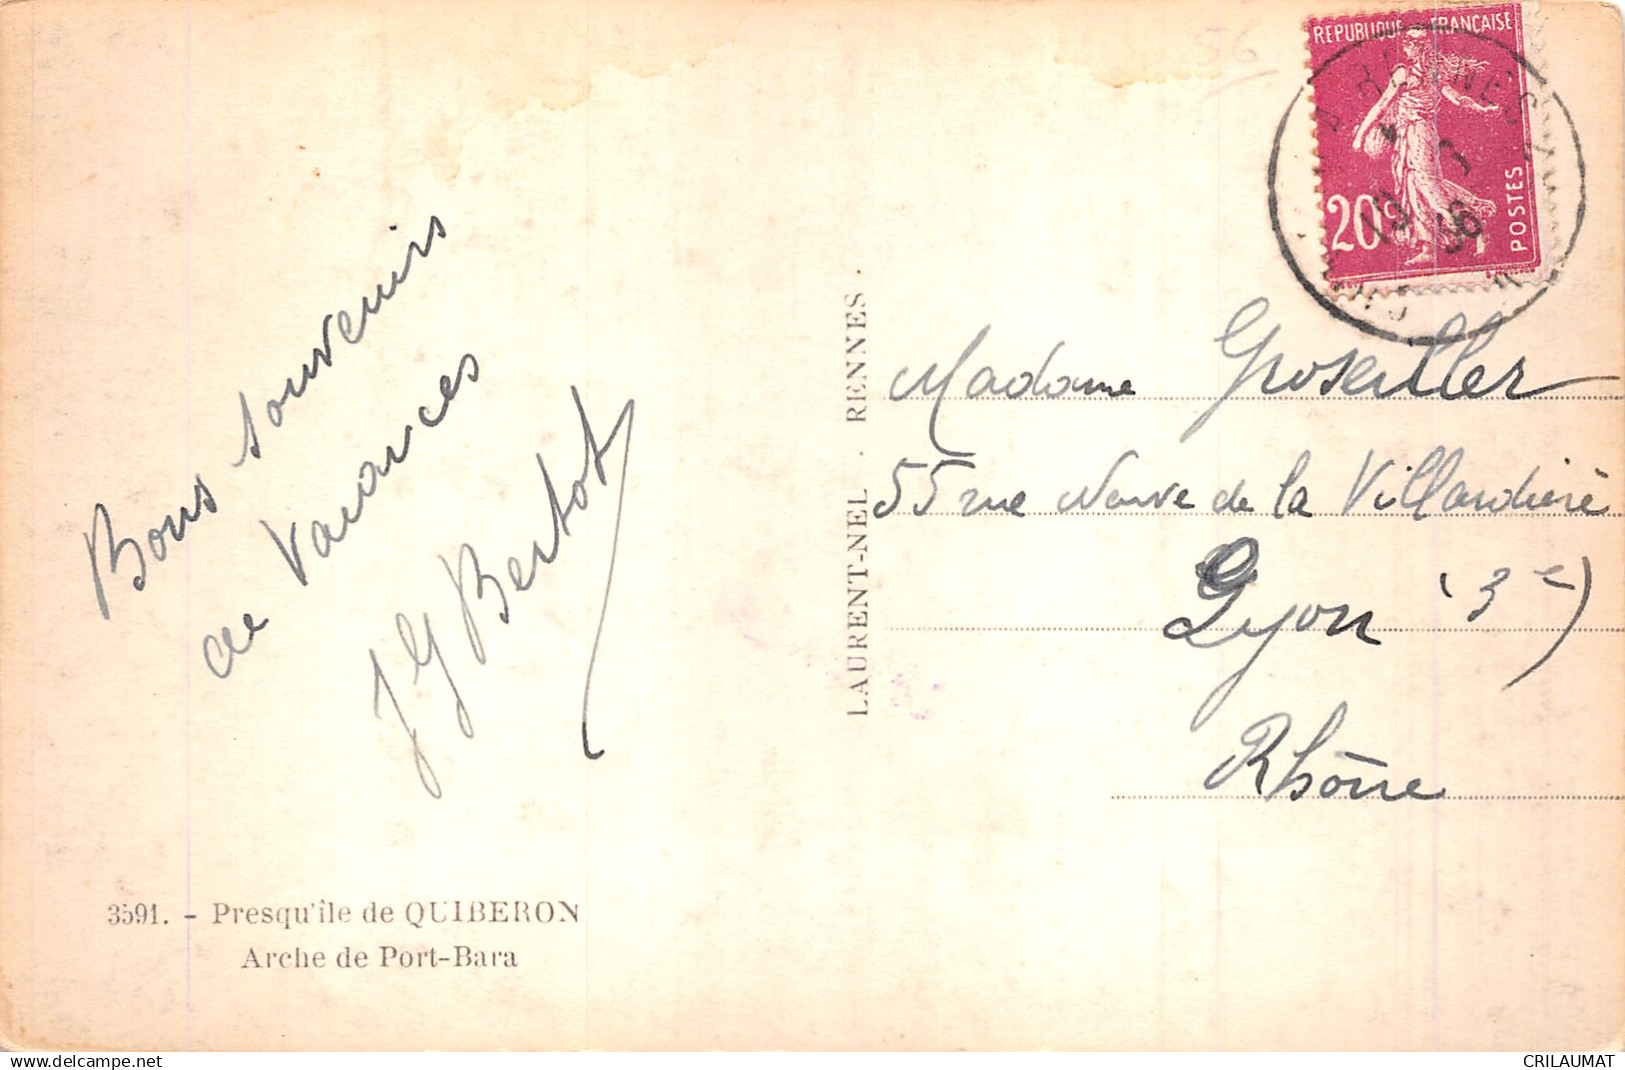 56
RÉPUBLIQUE FRANÇAISE
20c
POSTES
Bons souvenirs
de Vacances
J G Bertot
3591. - Presqu'île de QUIBERON
Arche de Port-Bara
LAURENT-NEL . RENNES
Madame Groseiller
55 rue Neuve de la Villardière
Lyon (3e)
Rhône
www.delcampe.net
CRILAUMAT